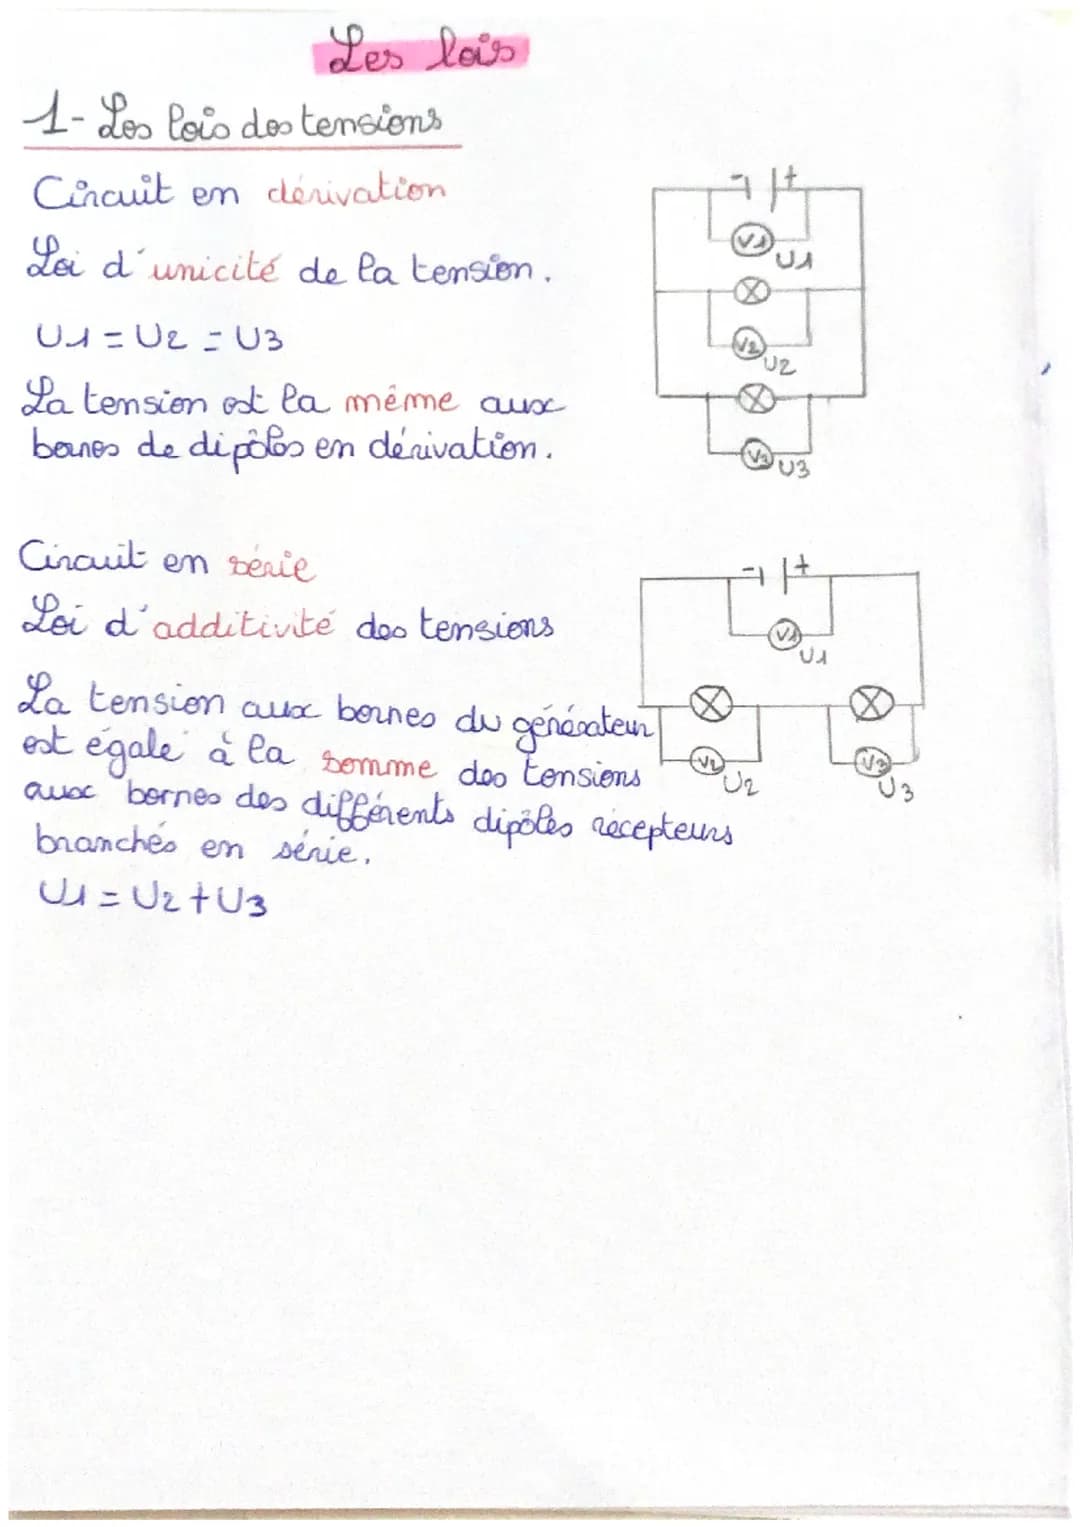 Les lois
1- Les lois des tensions
Circuit en dérivation
Loi d'unicité de la tension.
U1 = U2 = U3
La tension est la même aux
bornes de dipôles en dérivation.
- +
V1
U1
V2
U2
V3
U3
Circuit en série
Loi d'additivité des tensions
La tension aux bornes du générateur
est égale à la somme des tensions
aux bornes des différents dipôles récepteurs
branchés en série.
U1 = U2 + U3
- +
V1
U1
V2
U2
V3
U3